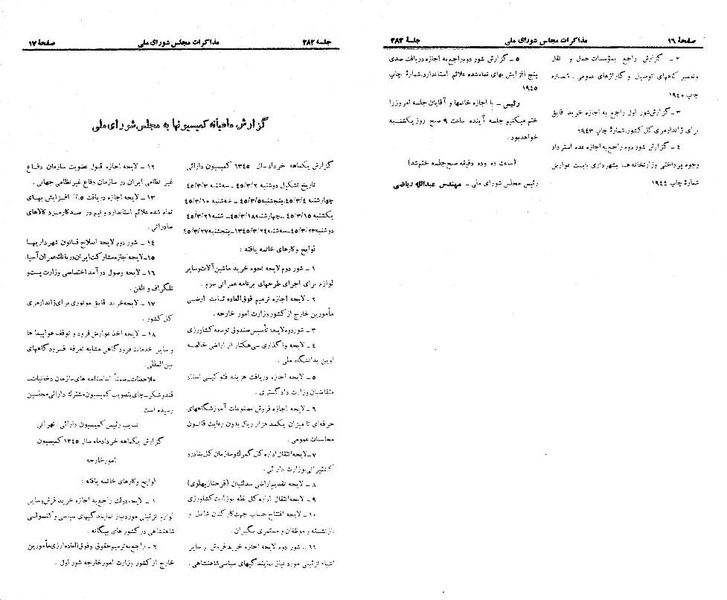 صفحهٔ ۱۶ مذاکرات مجلس شورای ملی جلسهٔ ۲۸۳
۲ – گزارش راجع بمؤسسات حمل و نقل
وتعمیر گاههای اتومبیل و گاراژهای عمومی. شماره
چاپ ۱۹۴۰
۳ – گزارش شور اول راجع به اجازه خرید قایق
برای ژاندارمری کل کشور. شماره چاپ ۱۹۴۳
۴ – گزارش شور دوم راجع به اجازه عدم استرداد
وجوه پرداختی وزارتخانه‌ها بشهرداری بابت عوارض
شمارهٔ چاپ ۱۹۴۴
۵ – گزارش شور دوم راجع به اجازه دریافت صدی
پنج افزایش بهای تمام‌شده علائم استاندارد. شمارهٔ چاپ
۱۹۴۵
رئیس – با اجازه خانمها و آقایان جلسه امروز را
ختم میکنیم جلسه آینده ساعت ۹ صبح روز یکشنبه
خواهد بود.
(ساعت ده و ده دقیقه صبح جلسه ختم شد)
رئیس مجلس شورای ملی – مهندس عبدالله ریاضی
جلسه ۲۸۳ مذاکرات مجلس شورای ملی صفحهٔ ۱۷
گزارش ماهیانه کمیسیونها به مجلس شورای ملی
گزارش یکماهه خرداد ماه ۱۳۴۵ کمیسیون دارائی
تاریخ تشکیل دوشنبه ۴۵/۳/۲ – شنبه ۴۵/۳/۳
چهارشنبه ۴۵/۳/۴ پنجشنبه ۴۵/۳/۵ – شنبه ۴۵/۳/۱۰
یکشنبه ۴۵/۳/۱۵ – چهارشنبه ۴۵/۳/۱۸ – شنبه ۴۵/۳/۲۱
لوایح وکارهای خاتمه یافته :
۱ – شور دوم لایحه نحوه خرید ماشین آلات وسایر
لوازم برای اجرای طرحهای برنامه عمرانی سوم .
۲ – لایحه اجازه ترمیم فوق‌العاده ثابت ارضی
مأمورین خارج از کشور وزارت امور خارجه .
۳ – شور دوم لایحه تأسیس صندوق توسعه کشاورزی
۴ – لایحه واگذاری سی هکتار از اراضی خالصه
اوین بدانشگاه ملی .
۵ – لایحه اجازه دریافت هزینه فتوکپی اسناد
متقاضیان وزارت دادگستری .
۶ – لایحه اجازه فروش مصنوعات آموزشگاههای
حرفه‌ای تا میزان یکصد هزار ریال بدون رعایت قانون
محاسبات عمومی .
۷ – لایحه انتقال اداره کل گمرک وسازمان کل بنادر و
کشتیرانی بوزارت دارائی .
۸ – لایحه تقدیم اراضی سدلتیان (فرحناز پهلوی)
۹ – لایحه انتقال اداره کل غله بوزارت کشاورزی
۱۰ – لایحه افتتاح حساب جهت کارکنان شاغل و
بازنشسته و موظفان و مستمری بگیران .
۱۱ – شور دوم لایحه اجازه خرید فرش و سایر
اشیاء تزئینی مورد نیاز نمایندگیهای سیاسی شاهنشاهی .
۱۲ – لایحه اجازه قبول عضویت سازمان دفاع
غیر نظامی ایران در سازمان دفاع غیر نظامی جهانی .
۱۳ – لایحه اجازه دریافت ٪۵ افزایش بهای
تمام شده علائم استاندارد و نیم در صد کارمزد کالاهای
صادراتی .
۱۴ – شور دوم لایحه اصلاح قانون شهرداریها
۱۵ – لایحه اجازه مشارکت ایران در بانک عمران آسیا
۱۶ – لایحه وصول درآمد اختصاصی وزارت پست و
تلگراف و تلفن .
۱۷ – لایحه خرید قایق موتوری برای ژاندارمری
کل کشور .
۱۸ – لایحه اخذ عوارض فرود و توقف هواپیما ها
و سایر خدمات فرودگاهی مشابه تعرفه فرودگاههای
بین‌المللی
ملاحظات – ضمناً اساسنامه های سازمان دخانیات –
قند وشکر – چای بتصویب کمیسیون مشترک دارائی مجلسین
رسیده است
نایب رئیس کمیسیون دارائی. تهرانی
گزارش یکماهه خرداد ماه سال ۱۳۴۵ کمیسیون
امور خارجه
لوایح وکارهای خاتمه یافته :
۱ – لایحه دولت راجع به اجازه خرید فرش وسایر
لوازم تزئینی مورد نیاز نمایندگیهای سیاسی و کنسولی
شاهنشاهی در کشور های بیگانه .
۲ – راجع به ترمیم حقوق وفوق العاده ارزی مأمورین
خارج از کشور وزارت امور خارجه شور اول .